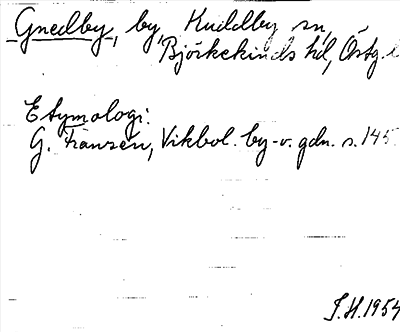 Gnedby, by, Kuddby sn,
Björkekinds hd, Östg. l
Etymologi:
G. Franzén, Vikbol. by- o. gdn. s. 145.
S.H. 1954